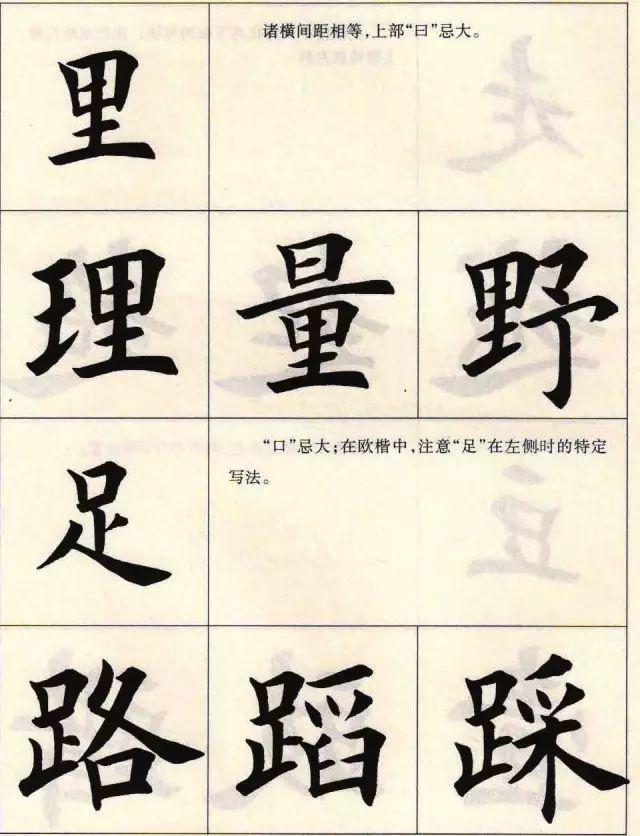 诸横间距相等,上部“曰”忌大。
里
理 量 野
“口”忌大;在欧楷中,注意“足”在左侧时的特定
写法。
足
路 蹈 踩